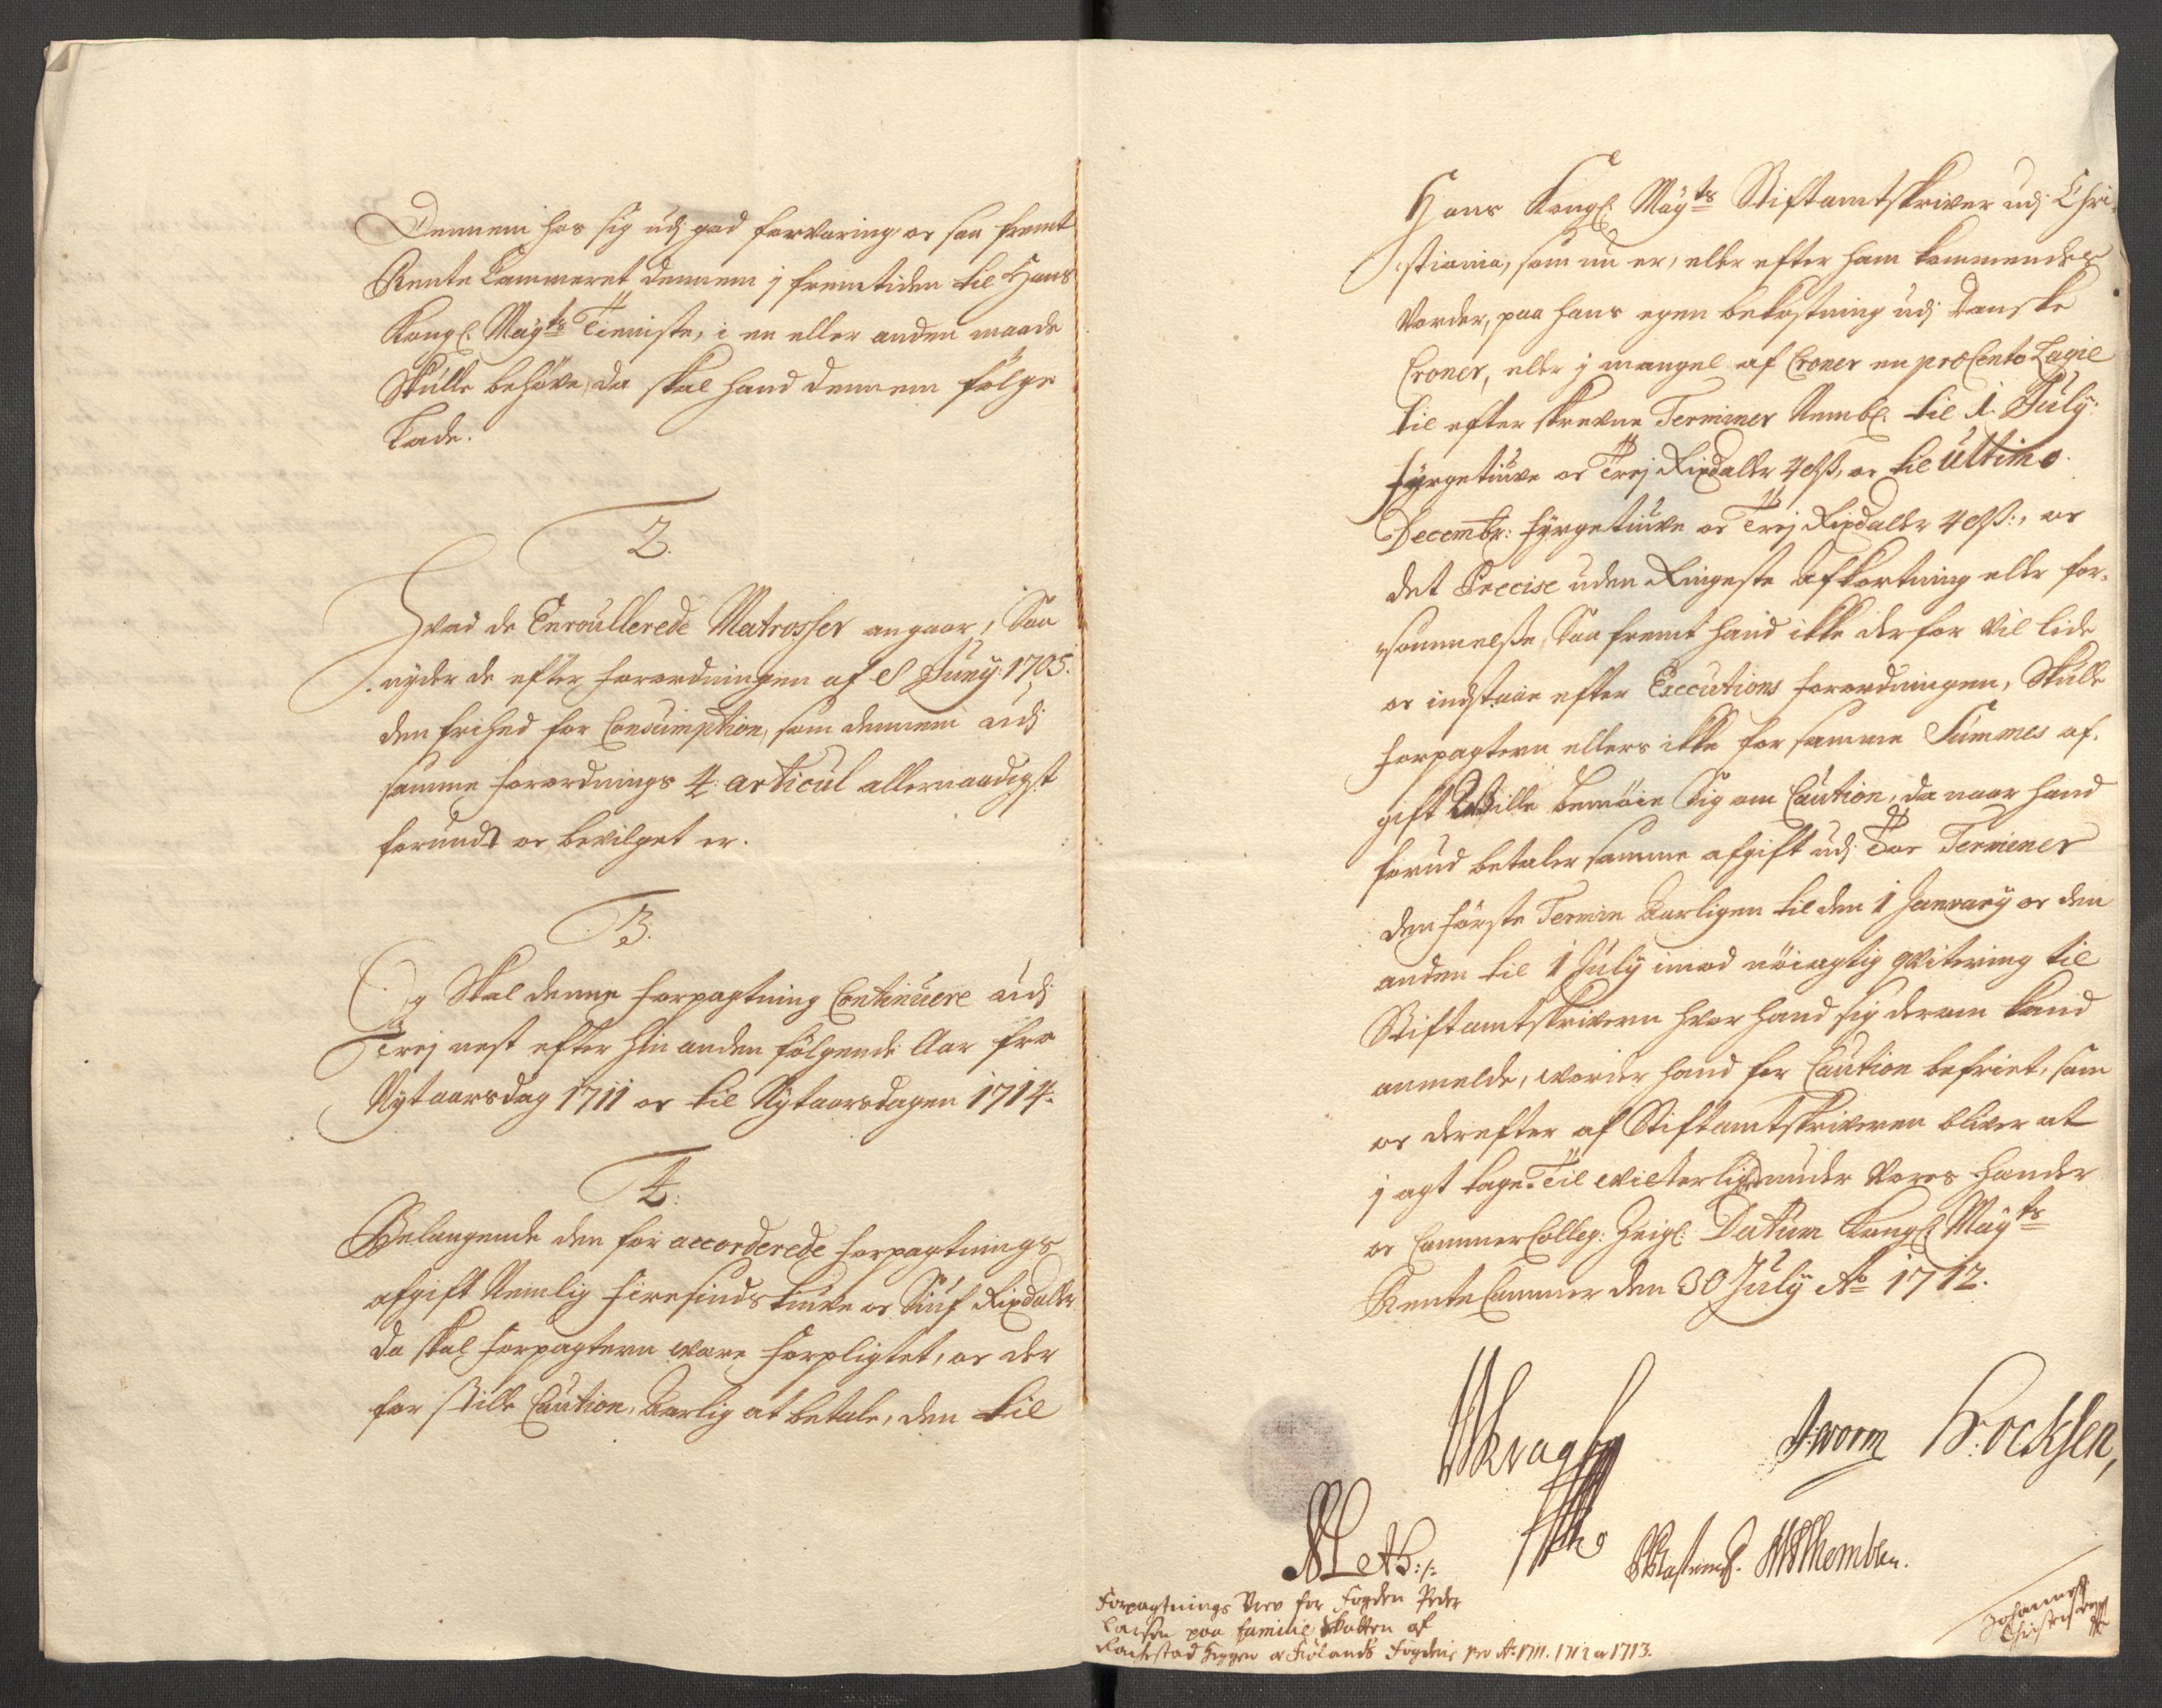 Dennem hos sig udj god forvaring os saa fremt
Rente Cammeret dennem j fremtiden til Hans
Kongl. Mayts Tienniste, i en eller anden maade
Skulle behöve, da skal hand dennem fölge
Lade.
2.
Hvad de Enroullerede Matrosser angaar, Saa
nyder de efter forordningen af 8 Juny: 1705.
den frihed for Consumption, som dennem udj
samme forordnings 4: articul allernaadigst
forundt os bevilget er.
3.
Og Skal denne forpagtning Continuere udj
Trej nest efter hin anden fölgende Aar fra
Nytaarsdag 1711 os til Nytaarsdagen 1714.
4:
Belangende den for accorderede forpagtnings
afgift Nemlig firesinds tiuve os Siuf Rixdaller
da skal forpagteren være forpligtet, os der
for stille Caution, Aarlig at betale, den til
Hans Kongl. Mayts Stiftamtskriver udj Chri-
stiania, som nu er, eller efter ham kommendes
Vorder, paa hans egen bekostning udj Danske
Croner, eller j mangel af Croner en pro Cento Lagie
til efter skrevne Terminer Nembl. til 1. July:
fyrgetiuve os Trej Rixdaller 4 ß, os til Ultimo
Decembr: fyrgetiuve os Trej Rixdaller 4 ß:, os
det Precise uden Ringeste Afkortning eller for-
sömmelsse, Saa fremt hand ikke derfor vil lide
os indstaae efter Executions forordningen, Skulle
forpagteren ellers ikke for samme Summes af-
gift Wille bemöie Sig om Caution, da naar hand
forud betaler samme afgift udj Toe Terminer
den förste Termin Aarligen til den 1 January os den
anden til 1 July imod nöiagtig qvitering til
Stiftamtskriveren hvor hand sig derom kand
anmelde, worder hand for Caution befriet, som
os derefter af Stiftamtskriveren bliver at
j agt tage. Til witterlighed under Vores Hænder
os Cammer Colleg: Zeigl: Datum Kongl. Mayts
Rente Cammer den 30 July Ao 1712.
Kragh
J: Worm
Bocksen,
Leth:/:
WThomblen.
Forpagtnings Brev for Fogden Peder
Larsen paa familie Skatten af
Rachestad Heggen os Frölands Fogderie pro Ao. 1711. 1712 os 1713.
Johannes
Christensen